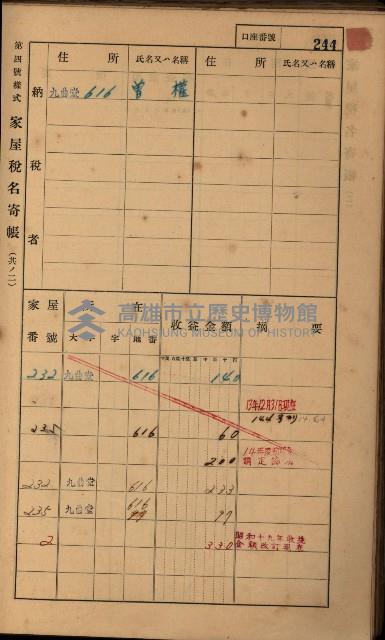 口座番號 244
第四號樣式 家屋稅名寄帳（共ノ二）
納稅者
住所 氏名又ハ名稱 住所 氏名又ハ名稱
九曲堂 616 曾權
家屋番號 所在 大字 地番 收益金額 摘要
高雄市立歷史博物館
KAOHSIUNG MUSEUM OF HISTORY
232 九曲堂 616 140
13年12月31日現在
235 616 60
200
14年度
調定
232 九曲堂 616 233
235 九曲堂 616 97
2 330 昭和十九年收益金額改訂現在